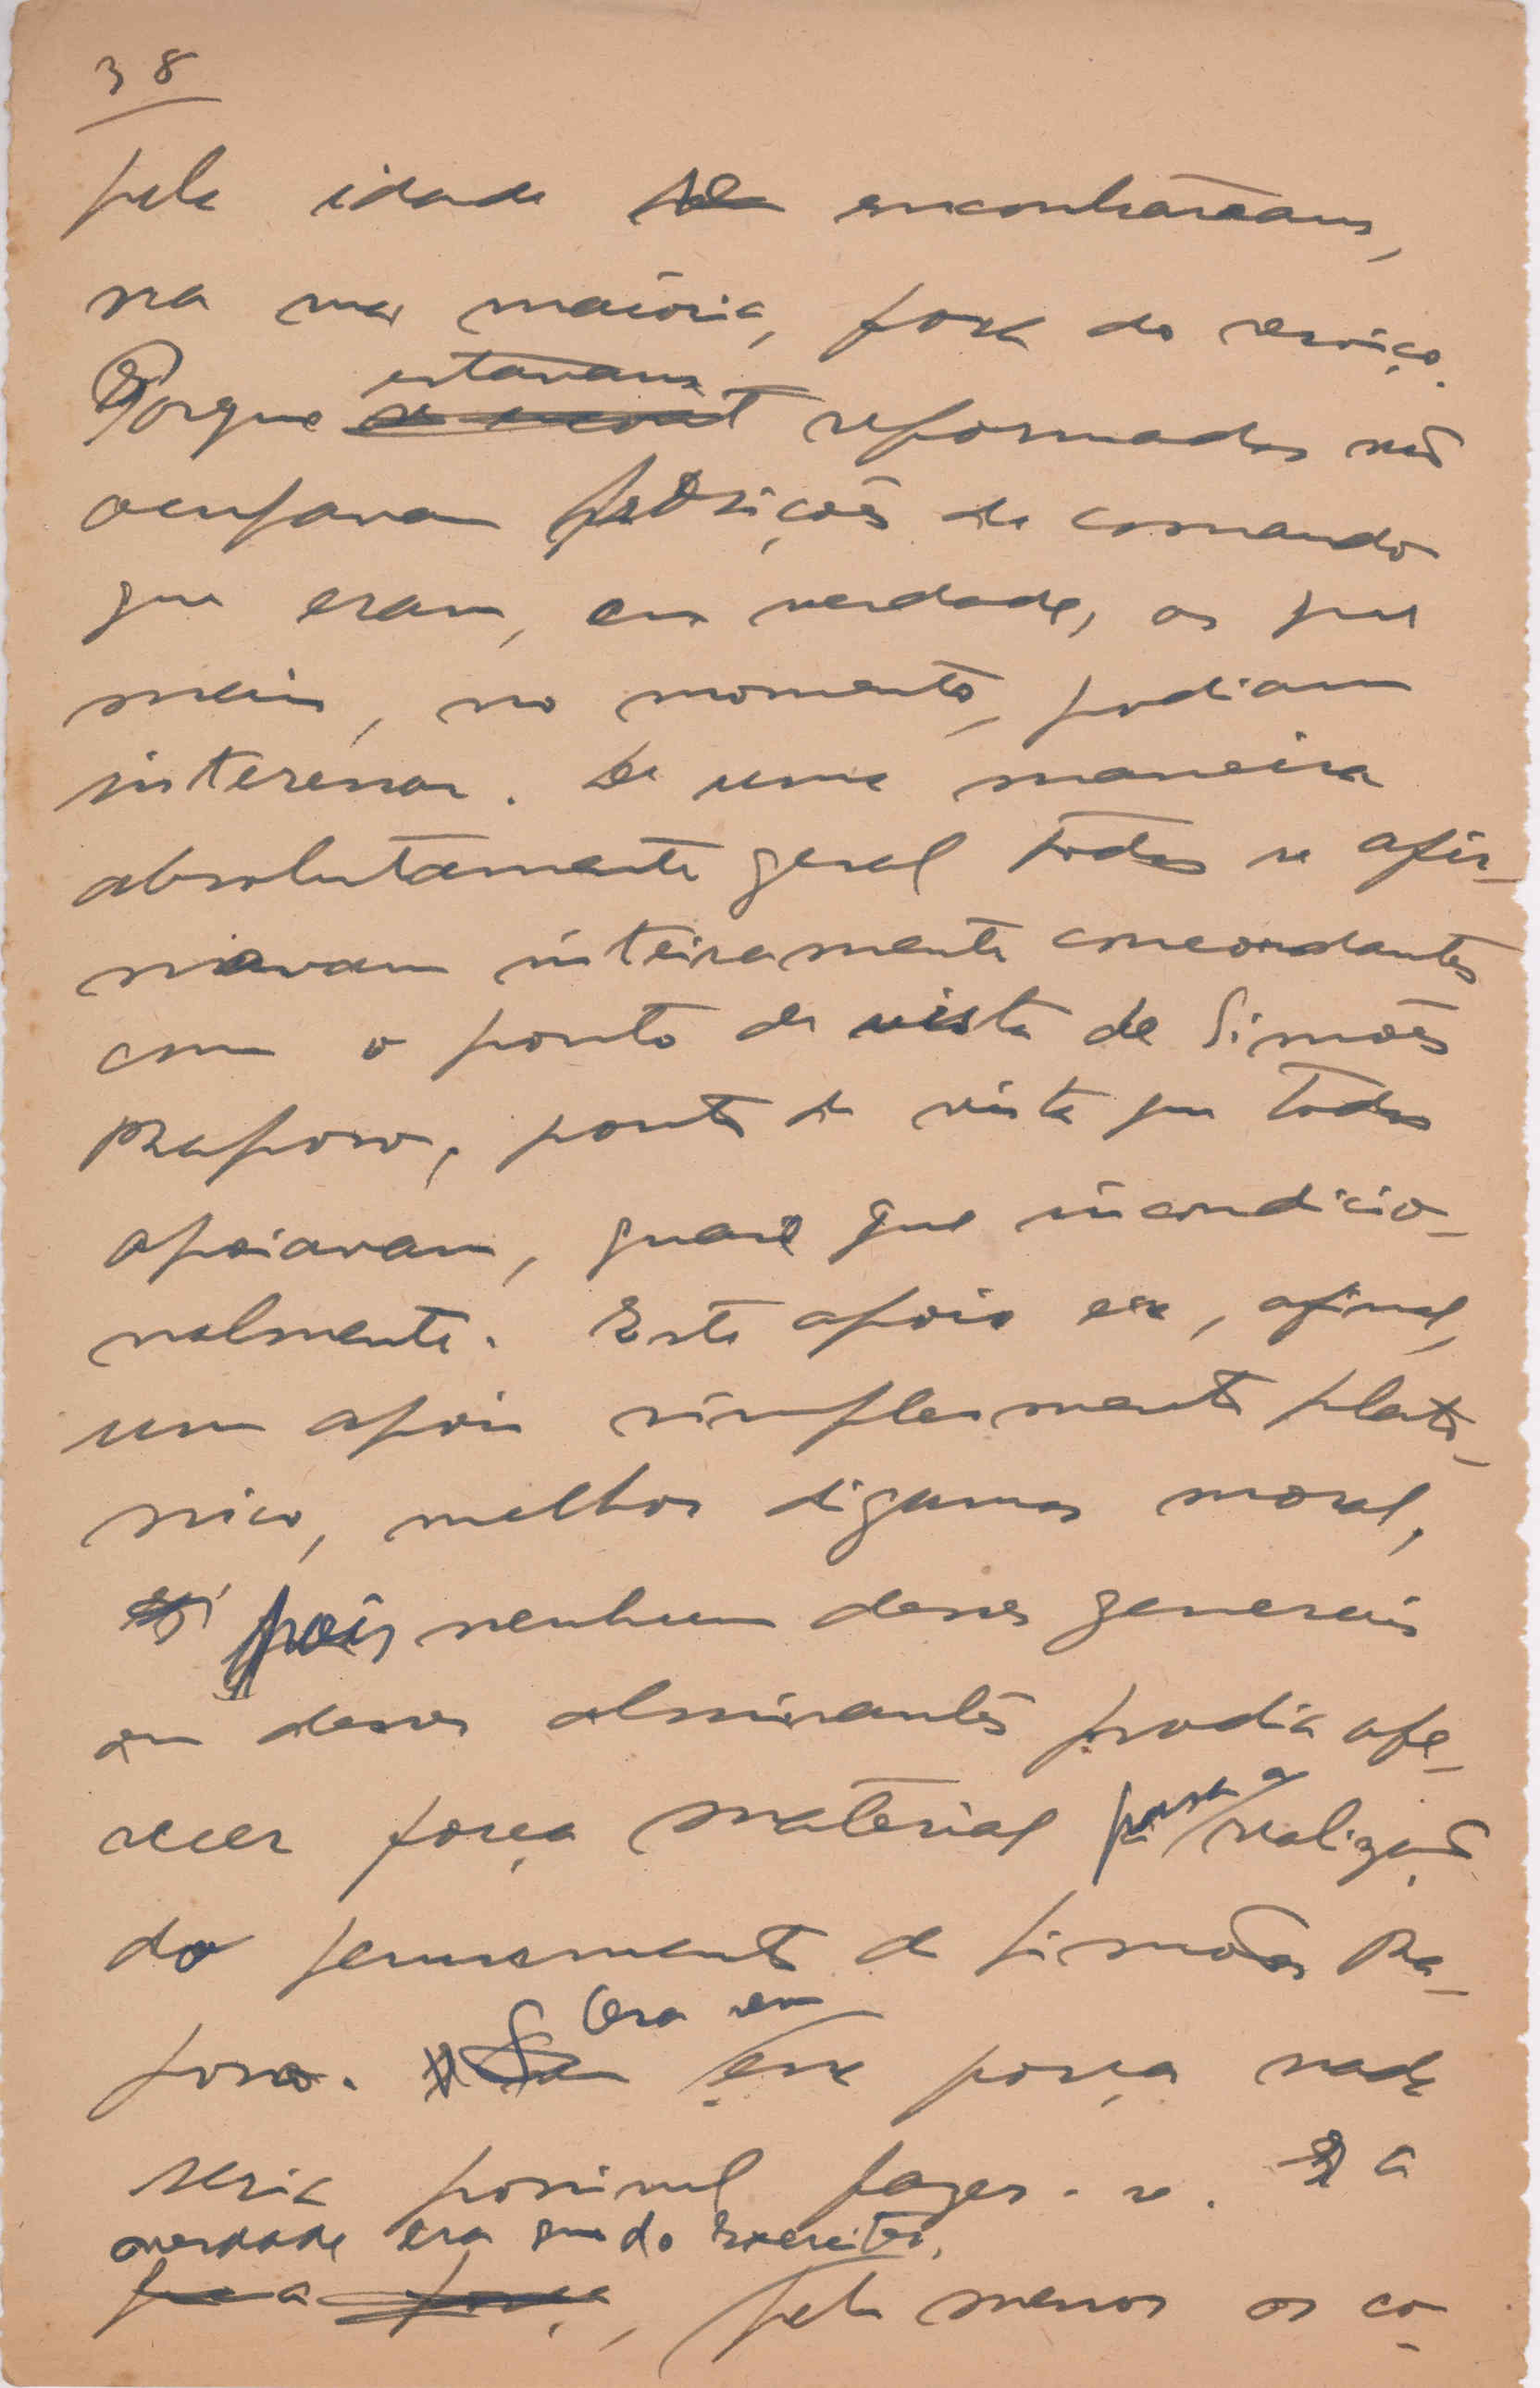 38
pela idade encontravam,
na sua maioria, fora do serviço.
Porque estavam reformados não
ocupavam posições de comando
que eram, em verdade, as que
mais, no momento, podiam
interessar. De uma maneira
absolutamente geral todos se afir-
mavam inteiramente concordantes
com o ponto de vista de Simões
Raposo, ponto de vista que todos
apoiavam, quasi que incondicio-
nalmente. Este apoio era, afinal,
um apoio simplesmente plato-
nico, melhor digamos moral,
pois nenhum desses generais
ou desses almirantes podia ofe-
recer força material para a realização
do pensamento de Simões Ra-
poso. Ora sem essa força nada
seria possivel fazer-se. E a
verdade era que do Exercito,
pelo menos os co-